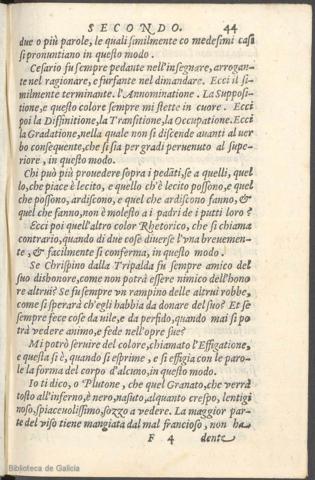 SECONDO. 44
due o più parole, le quali similmente co medesimi casi
si pronuntiano in questo modo.
Cesario fu sempre pedante nell'insegnare, arrogan-
te nel ragionare, e furfante nel dimandare. Ecci il si-
milmente terminante. l'Annominatione. La Supposi-
tione, e questo colore sempre mi stette in cuore. Ecci
poi la Diffinitione, la Transitione, la Occupatione. Ecci
la Gradatione, nella quale non si discende auanti al uer
bo consequente, che si sia per gradi peruenuto al supe-
riore, in questo modo.
Chi può più prouedere sopra i pedāti, se a quelli, quel
lo, che piace è lecito, e quello ch'è lecito possono, e quel
che possono, ardiscono, e quel che ardiscono fanno, &
quel che fanno, non è molesto a i padri de i putti loro?
Ecci poi quell'altro color Rhetorico, che si chiama
contrario, quando di due cose diuerse l'vna breuemen-
te, & facilmente si conferma, in questo modo.
Se Chrispino dalla Tripalda fu sempre amico del
suo dishonore, come non potrà essere nimico dell'hono
re altrui? Se fu sempre vn rampino delle altrui robbe,
come si sperarà ch'egli habbia da donare del suo? Et se
sempre fece cose da uile, e da perfido, quando mai si po
trà vedere animo, e fede nell'opre sue?
Mi potrò seruire del colore, chiamato l'Effigatione,
e questa si è, quando si esprime, e si effigia con le paro-
le la forma del corpo d'alcuno, in questo modo.
Io ti dico, o Plutone, che quel Granato, che verrà
tosto all'inferno, è nero, nasuto, alquanto crespo, lentigi
noso, spiaceuolissimo, sozzo a vedere. La maggior par-
te del viso tiene mangiata dal mal francioso, non ha
F 4 dente
Biblioteca de Galicia